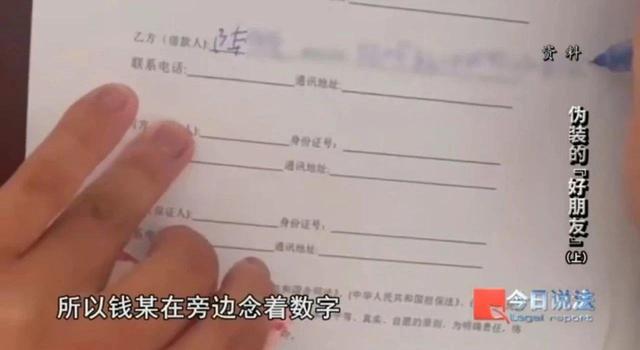 资料
乙方（借款人）：陈
联系电话：通讯地址：
人）：身份证号：
通讯地址：
保证人）：身份证号：
通讯地址：
《中华人民共和国担保法》、
等、真实、自愿的原则，为明确责任，恪
伪装的“好朋友”（上）
所以钱某在旁边念着数字
今日说法
Legal report